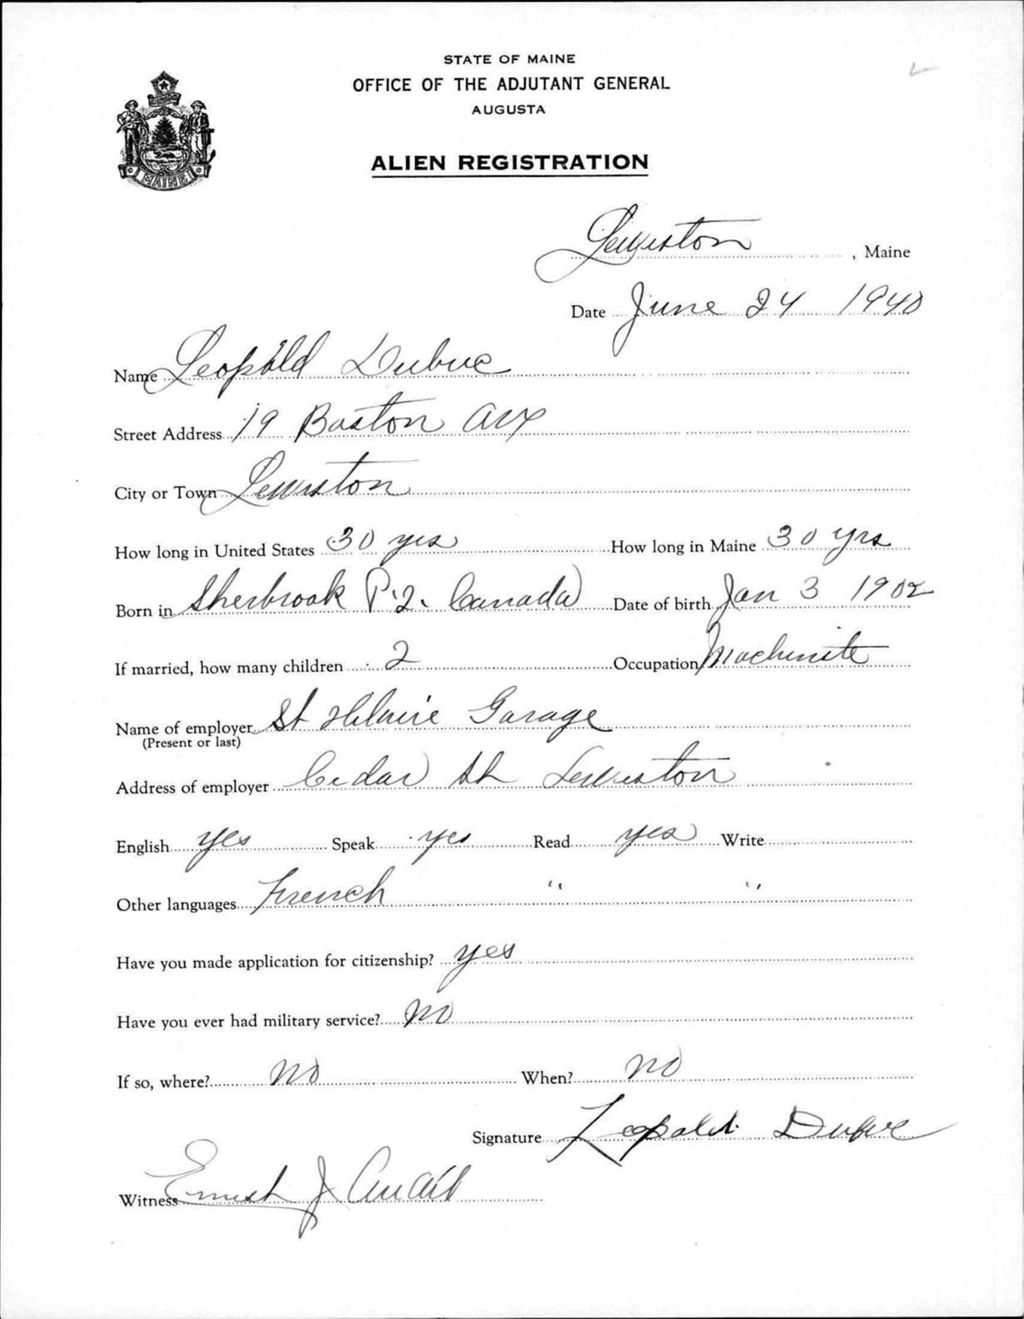 STATE OF MAINE
OFFICE OF THE ADJUTANT GENERAL
AUGUSTA
MAINE
ALIEN REGISTRATION
Lewiston, Maine
Date June 24 1940
Name Leopold Dubuc
Street Address 19 Boston Ave
City or Town Lewiston
How long in United States 30 yrs How long in Maine 30 yrs
Born in Sherbrook P.Q. Canada Date of birth Jan 3 1902
If married, how many children 2 Occupation Machinist
Name of employer St Hilaire Garage
(Present or last)
Address of employer Cedar St Lewiston
English yes Speak yes Read yes Write
Other languages French " "
Have you made application for citizenship? yes
Have you ever had military service? no
If so, where? no When? no
Signature Leopold Dubuc
Witness J